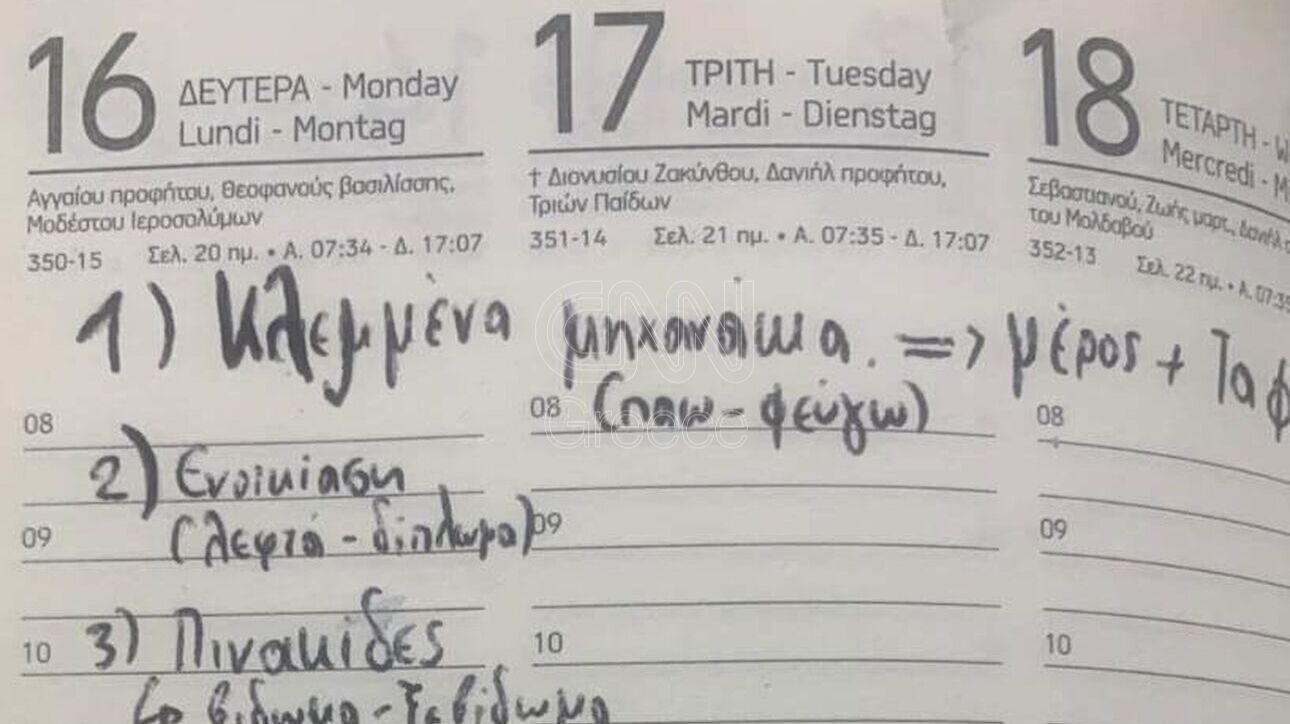 16 ΔΕΥΤΕΡΑ - Monday
Lundi - Montag
Αγγαίου προφήτου, Θεοφανούς βασιλίσσης,
Μοδέστου Ιεροσολύμων
350-15 Σελ. 20 ημ. • Α. 07:34 - Δ. 17:07
17 ΤΡΙΤΗ - Tuesday
Mardi - Dienstag
† Διονυσίου Ζακύνθου, Δανιήλ προφήτου,
Τριών Παίδων
351-14 Σελ. 21 ημ. • Α. 07:35 - Δ. 17:07
18 ΤΕΤΑΡΤΗ -
Mercredi -
Σεβαστιανού, Ζωής μαρτ., Δανιήλ
του Μολδαβού
352-13 Σελ. 22 ημ. • Α. 07:35
1) Κλεμμένα μηχανάκια. => μέρος + Τα
08 (παω - φεύγω) 08 08
2) Ενοικίαση
09 (λεφτά - δίπλωμα) 09 09
10 3) Πινακίδες 10 10
βιδωμα - ξεβίδωμα
CNN
Greece